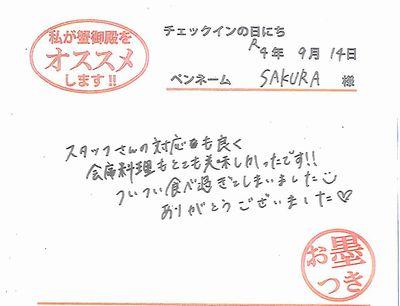 私が蟹御殿を
オススメ
します!!
チェックインの日にち
R4年 9月 14日
ペンネーム SAKURA 様
スタッフさんの対応も良く
会席料理もとても美味しかったです!!
ついつい食べ過ぎてしまいました
ありがとうございました♡
お墨
つき